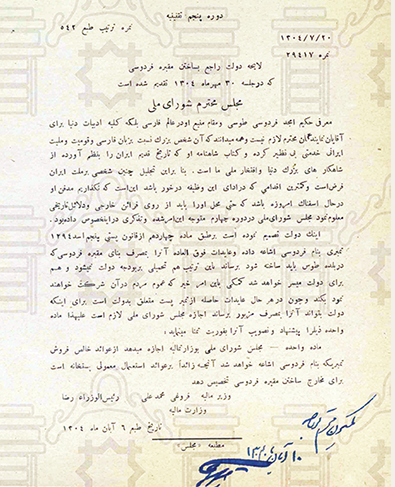 دوره پنجم تقنینیه
نمره ترتیب طبع ۵۴۲
۱۳۰۴/۷/۲۰
نمره ۲۹۴۱۷
لایحه دولت راجع بساختن مقبره فردوسی
که در جلسه ۳۰ مهر ماه ۱۳۰۴ تقدیم شده است
مجلس محترم شورای ملی
معرفی حکیم امجد فردوسی طوسی ومقام منیع اودرعالم فارسی بلکه کلیه ادبیات دنیا برای
آقایان نمایندگان محترم لازم نیست وهمه میدانند که آن شخص بزرگ نسبت بزبان فارسی وقومیت وملیت
ایرانی خدمتی بی نظیر کرده و کتاب شاهنامه او که تاریخ قدیم ایران را بنظم آورده از
شاهکار های بزرگ دنیا و افتخار ملی ما است. بنا براین تجلیل چنین شخصی برملت ایران
فرض است وکمترین اقدامی که درادای این وظیفه درخور باشد این است که نگذاریم مدفن او
درحال اسفناک امروزه باشد که حتی محل اورا باید از روی قرائن خارجی ودلائل تاریخی
معلوم نمود مجلس شورای ملی در دوره چهارم متوجه این امر شده وتذکری دراینخصوص داده بود.
اینک دولت تصمیم نموده است برطبق ماده چهاردهم ازقانون پستی پنجم اسد ۱۲۹۴
تمبری بنام فردوسی اشاعه داده وعایدات فوق العاده آنرا بمصرف بنای مقبره فردوسی که
دربلده طوس باید ساخته شود برساند باین ترتیب هم تحمیلی بربودجه دولت نمیشود و هم
برای دولت میسر خواهد شد کمکی باین امر خیر که عموم مردم درآن شرکت خواهند
نمود بکند وچون در هر حال عایدات حاصله ازتمبر پست متعلق بدولت است برای اینکه
دولت بتواند آنرا بمصرف مزبور برساند اجازه مجلس شورای ملی لازم است علیهذا ماده
واحده ذیلرا پیشنهاد و تصویب آنرا بفوریت تمنا مینماید:
ماده واحده — مجلس شورای ملی بوزارتمالیه اجازه میدهد ازعوائد خالص فروش
تمبریکه بنام فردوسی اشاعه خواهد شد آنچه زائداً برعوائد استعمال معمولی پستخانه است
برای مخارج ساختن مقبره فردوسی تخصیص دهد
وزیر مالیه فروغی محمد علی رئیس الوزراء رضا
وزارت مالیه
تاریخ طبع ۶ آبان ماه ۱۳۰۴
مطبعه «مجلس»